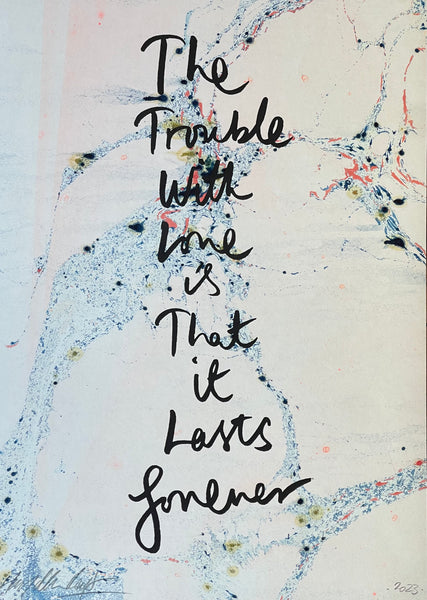 The
Trouble
With
Love
is
That
it
Lasts
forever
2023